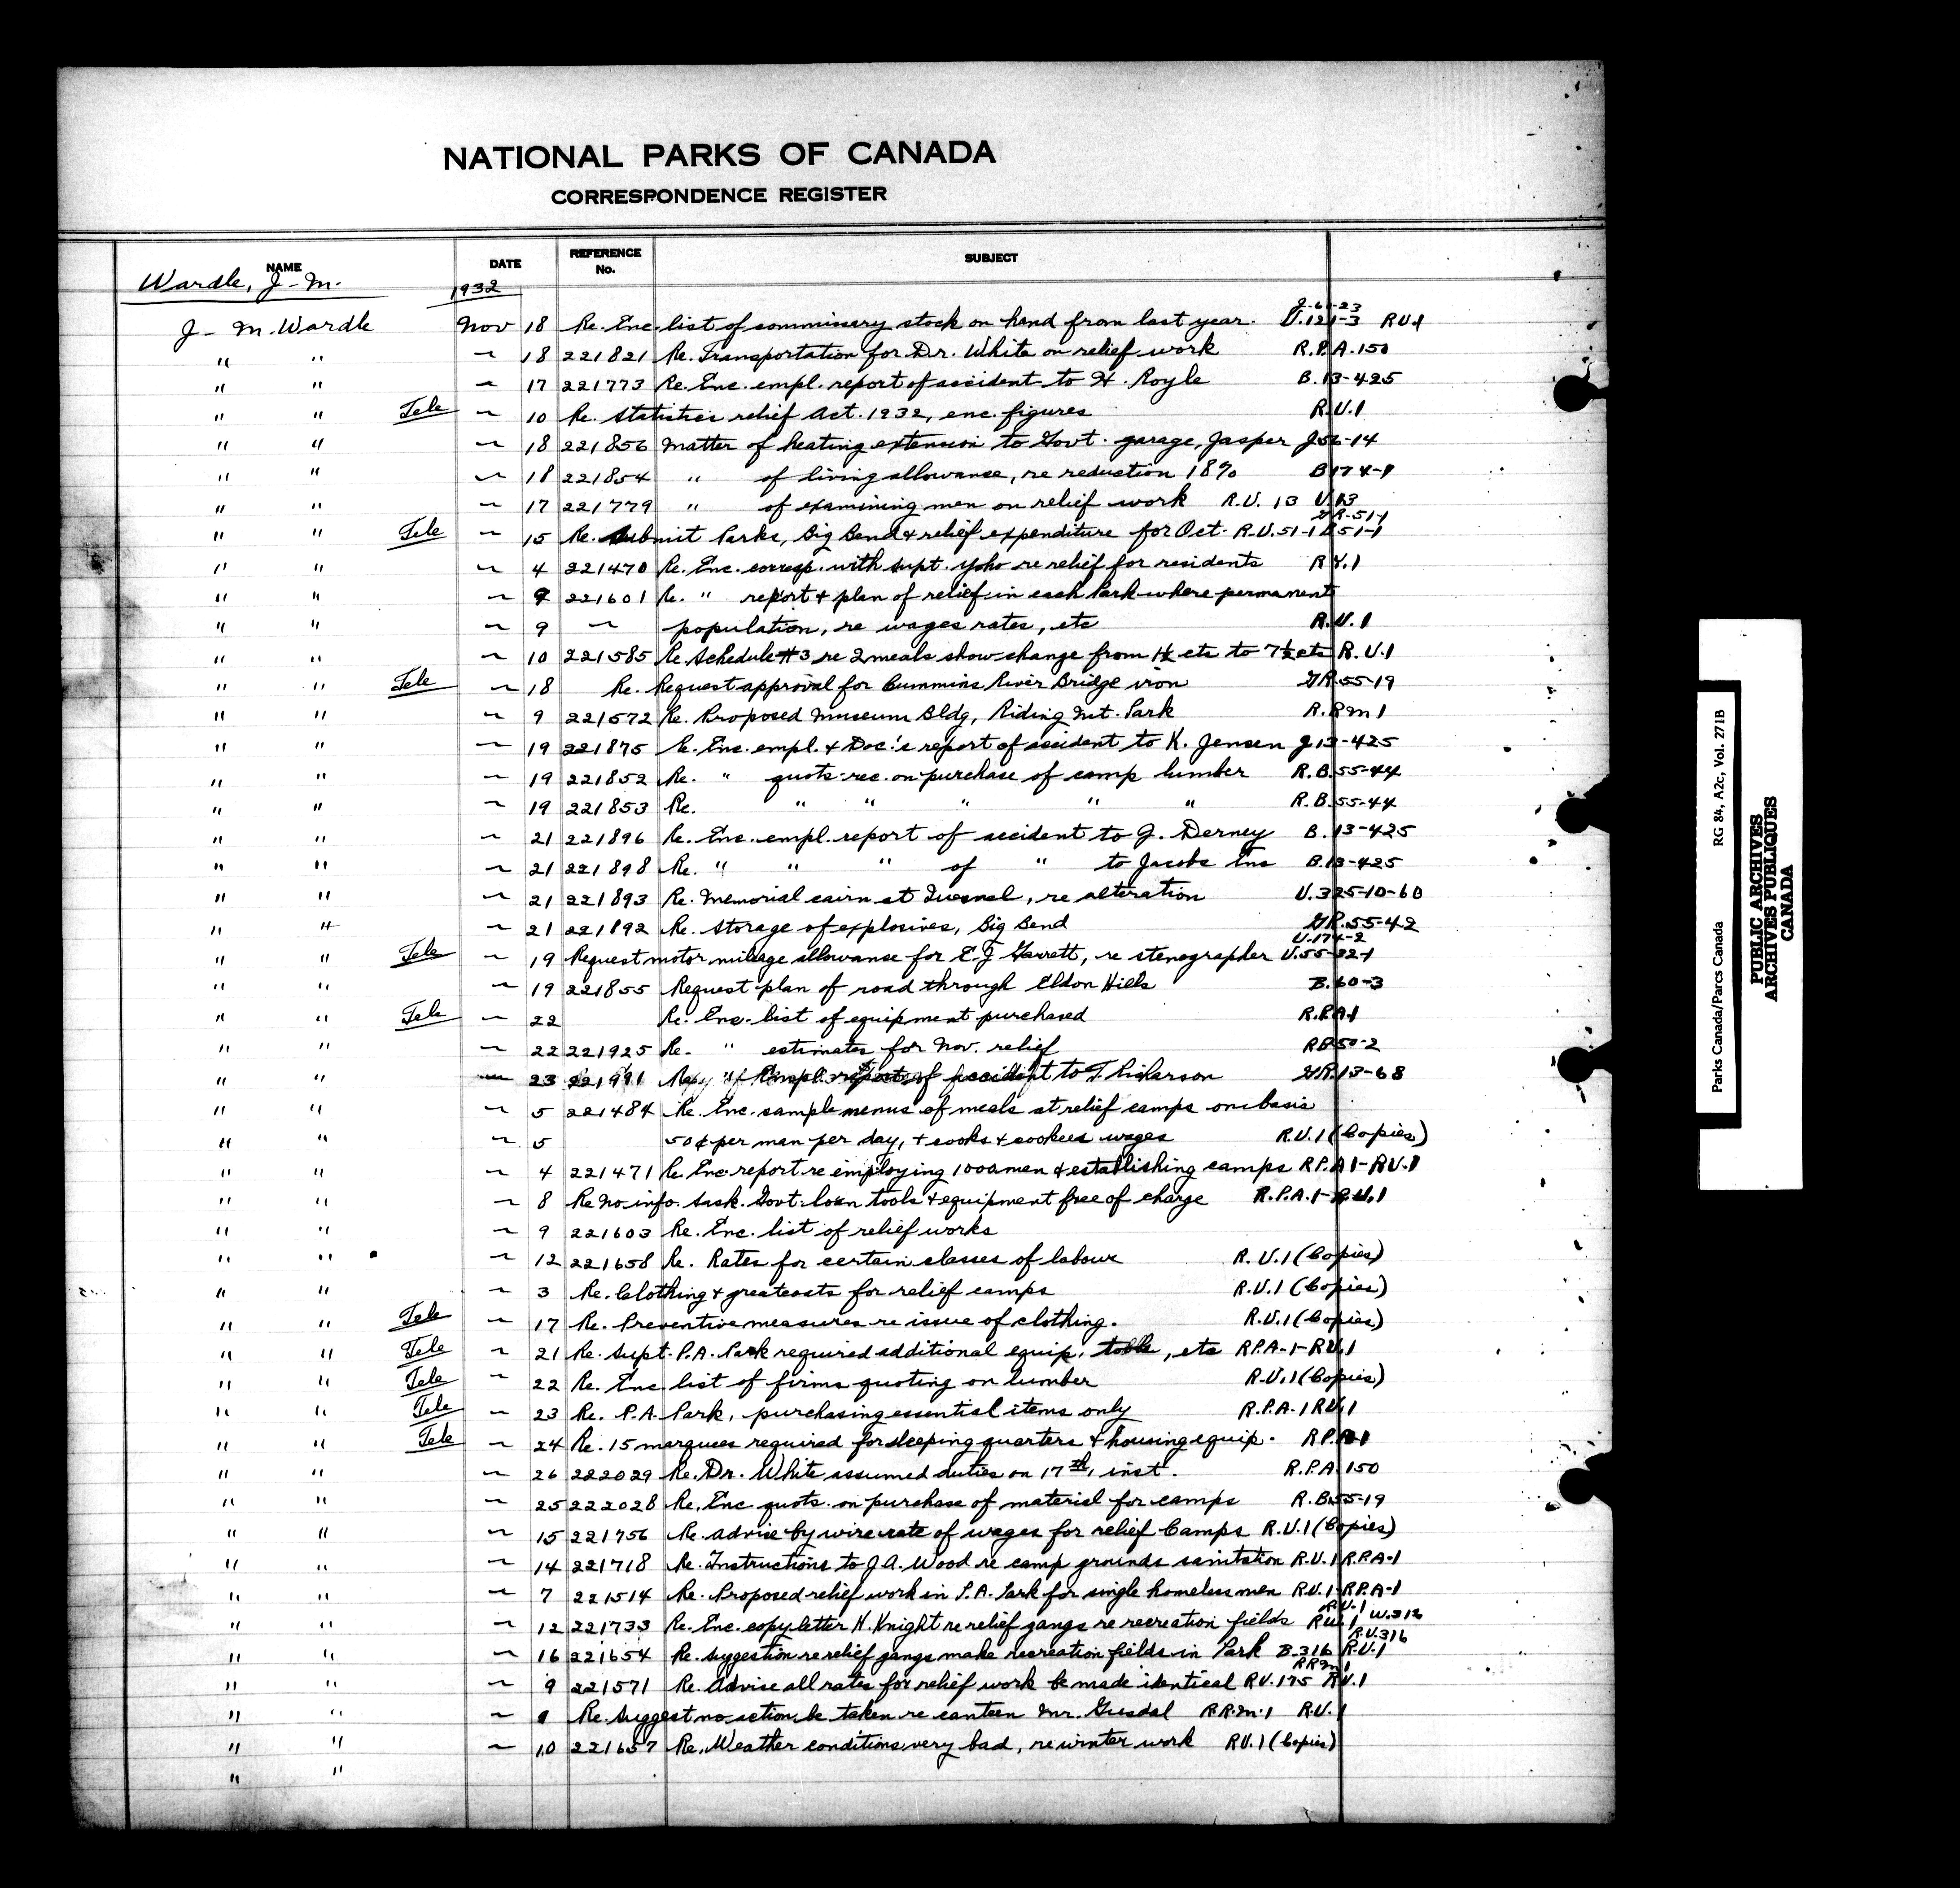 NATIONAL PARKS OF CANADA
CORRESPONDENCE REGISTER
NAME DATE REFERENCE No. SUBJECT
Wardle, J-M. 1932
J-61-23
J-M. Wardle Nov 18 Re. Enc. list of commissary stock on hand from last year. U.121-3 RU.1
" " ~ 18 221821 Re. Transportation for Dr. White on relief work R.P.A.150
" " ~ 17 221773 Re. Enc. empl. report of accident to H. Royle B.13-425
" " Tele ~ 10 Re. Statistics relief Act. 1932, enc. figures R.U.1
" " ~ 18 221856 Matter of heating extension to Govt. garage, Jasper J56-14
" " ~ 18 221854 " of living allowance, re reduction 18% B174-1
" " ~ 17 221779 " of examining men on relief work R.U.13 U.13
GR-51-1
" " Tele ~ 15 Re. Submit Parks, Big Bend & relief expenditure for Oct. R-U.51-1 B51-1
" " ~ 4 221470 Re. Enc. corresp. with supt. Yoho re relief for residents R.Y.1
" " ~ 9 221601 Re. " report & plan of relief in each Park where permanent
" " ~ 9 ~ population, re wages rates, etc R.U.1
" " ~ 10 221585 Re. Schedule #3 re 2 meals show change from 1½ cts to 7½ cts R.U.1
" " Tele ~ 18 Re. Request approval for Cummins River Bridge iron GR.55-19
" " ~ 9 221572 Re. Proposed Museum Bldg, Riding Mt. Park R.R.M 1
" " ~ 19 221875 Re. Enc. empl. & Doc.'s report of accident to K. Jensen J13-425
" " ~ 19 221852 Re. " quots. rec. on purchase of camp lumber R.B.55-44
" " ~ 19 221853 Re. " " " " " R.B.55-44
" " ~ 21 221896 Re. Enc. empl. report of accident to J. Derney B.13-425
" " ~ 21 221898 Re. " " " of " to Jacobs B.13-425
" " ~ 21 221893 Re. Memorial cairn at Quesnel, re alteration U.325-10-60
" " ~ 21 221892 Re. Storage of explosives, Big Bend GR.55-42
U.174-2
" " Tele ~ 19 Request motor mileage allowance for E.J Garrett, re stenographer U.55-22-1
" " ~ 19 221855 Request plan of road through Eldon Hills B.60-3
" " Tele ~ 22 Re. Enc. list of equipment purchased R.P.A1
" " ~ 22 221925 Re. " estimates for Nov. relief RB50-2
" " ~ 23 221991 Re. " Empl. report of accident to T. Richarson GR.13-68
" " ~ 5 221484 Re. Enc. sample menus of meals at relief camps on basis
" " ~ 5 50¢ per man per day, + cooks & cookees wages R.U.1 (Copies)
" " ~ 4 221471 Re. Enc. report re employing 1000 men & establishing camps RP.A1-RU.1
" " ~ 8 Re no info. Sask. Govt. loan tools & equipment free of charge R.P.A.1-R.U.1
" " ~ 9 221603 Re. Enc. list of relief works
" " ~ 12 221658 Re. Rates for certain classes of labour R.U.1 (Copies)
" " ~ 3 Re. Clothing & greatcoats for relief camps R.U.1 (Copies)
" " Tele ~ 17 Re. Preventive measures re issue of clothing. R.U.1 (Copies)
" " Tele ~ 21 Re. Supt. P.A. Park required additional equip, table, etc RPA-1-RU.1
" " Tele ~ 22 Re. Enc. list of firms quoting on lumber R.U.1 (Copies)
" " Tele ~ 23 Re. P.A. Park, purchasing essential items only R.P.A-1 RU.1
" " Tele ~ 24 Re. 15 marquees required for sleeping quarters & housing equip. RP.A1
" " ~ 26 222029 Re. Dr. White assumed duties on 17th, inst. R.P.A.150
" " ~ 25 222028 Re, Enc. quots. on purchase of material for camps R.B.55-19
" " ~ 15 221756 Re. Advise by wire rate of wages for relief Camps R.U.1 (Copies)
" " ~ 14 221718 Re. Instructions to J.A. Wood re camp grounds sanitation R.U.1 R.P.A-1
" " ~ 7 221514 Re. Proposed relief work in P.A. Park for single homeless men R.U.1-RP.A-1
R.U.1
" " ~ 12 221733 Re. Enc. copy letter H. Knight re relief gangs re recreation fields RW.1 W.316
R.U.316
" " ~ 16 221654 Re. Suggestion re relief gangs make recreation fields in Park B.316 R.U.1
RRM1
" " ~ 9 221571 Re. Advise all rates for relief work be made identical RU.175 RU.1
" " ~ 9 Re. Suggest no action be taken re canteen Mr. Gusdal R.R.M.1 R.U.1
" " ~ 10 221657 Re, Weather conditions very bad, re winter work RU.1 (Copies)
" "
Parks Canada/Parcs Canada RG 84, A2c, Vol. 271B
PUBLIC ARCHIVES
ARCHIVES PUBLIQUES
CANADA